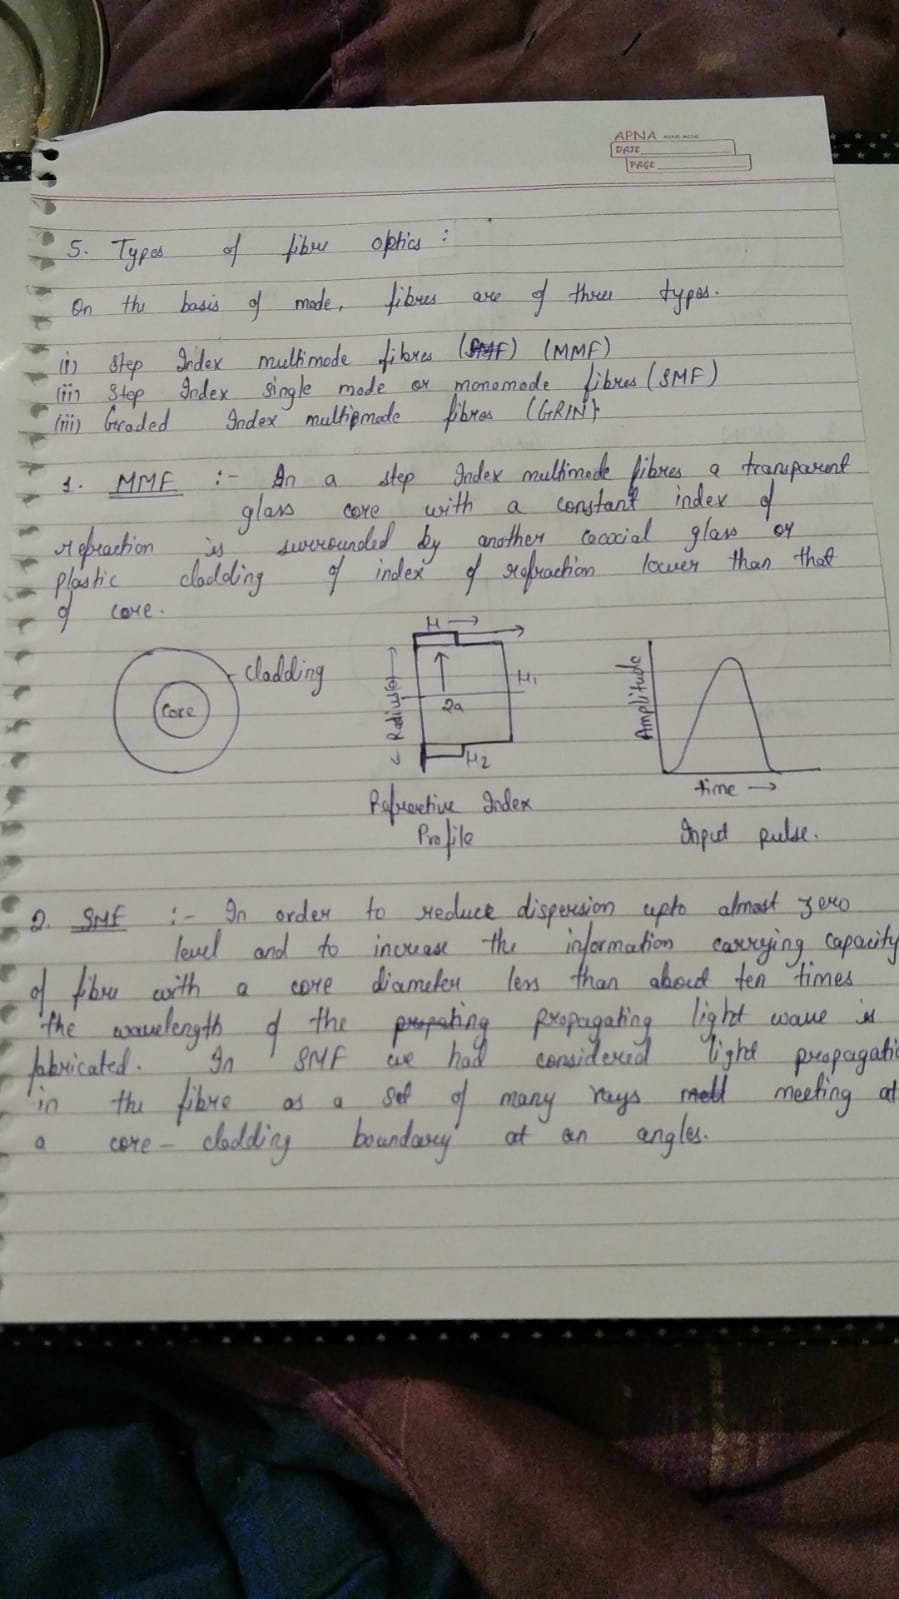 APNA
DATE
PAGE
5. Types of fibre optics :
On the basis of mode, fibres are of three types.
(i) Step Index multimode fibres (SMF) (MMF)
(ii) Step Index single mode or monomode fibres (SMF)
(iii) Graded Index multipmode fibres (GRIN)
1. MMF :- In a step Index multimode fibres a transparent
glass core with a constant index of
refraction is surrounded by another cocacial glass or
plastic cladding of index of refraction lower than that
of core.
cladding
Core
μ →
← Radius(a) →
2a
μ1
μ2
Refractive Index
Profile
Amplitude
time →
Input pulse.
2. SMF :- In order to reduce dispersion upto almost zero
level and to increase the information carrying capacity
of fibre with a core diameter less than about ten times
the wavelength of the propating propagating light wave is
fabricated. In SMF we had considered light propagatio
in the fibre as a set of many rays meeting at
a core - cladding boundary at an angles.